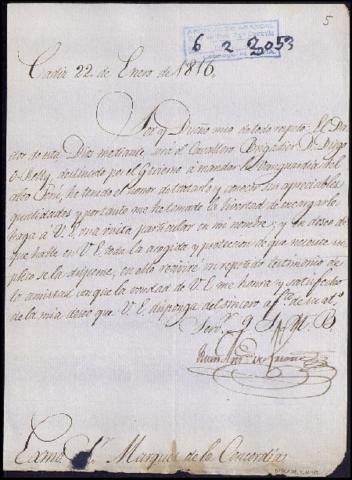 5
6 2 2053
Cadiz 22 de Enero de 1816.
Dueño mio de todo respeto: El
de este Dios mediante será el Cavallero Brigadier D. Diego
O-Relly destinado por el Govierno á mandar la Vanguardia del
Perú, he tenido el honor de tratarlo y conocer sus apreciables
qualidades y por tanto me he tomado la livertad de encargarle
haga á V.E. una visita particular en mi nombre; y en deseo de
que halle en V.E. toda la acogida y proteccion de que necesite su
se la dispense, en ello reciviré un repetido testimonio de
la amistad con que la vondad de V.E. me honra y satisfecho
de la mia deseo que V.E. disponga del sincero af.to de su at.o
Serv.r Q. S. M. B.
Exmo S.r Marques de la Concordia